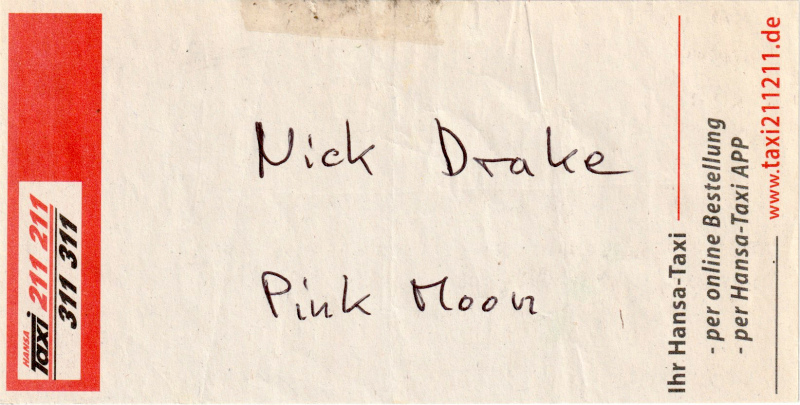 Nick Drake
Pink Moon
HANSA
Taxi 211 211
311 311
Ihr Hansa-Taxi
- per online Bestellung
- per Hansa-Taxi APP
www.taxi211211.de